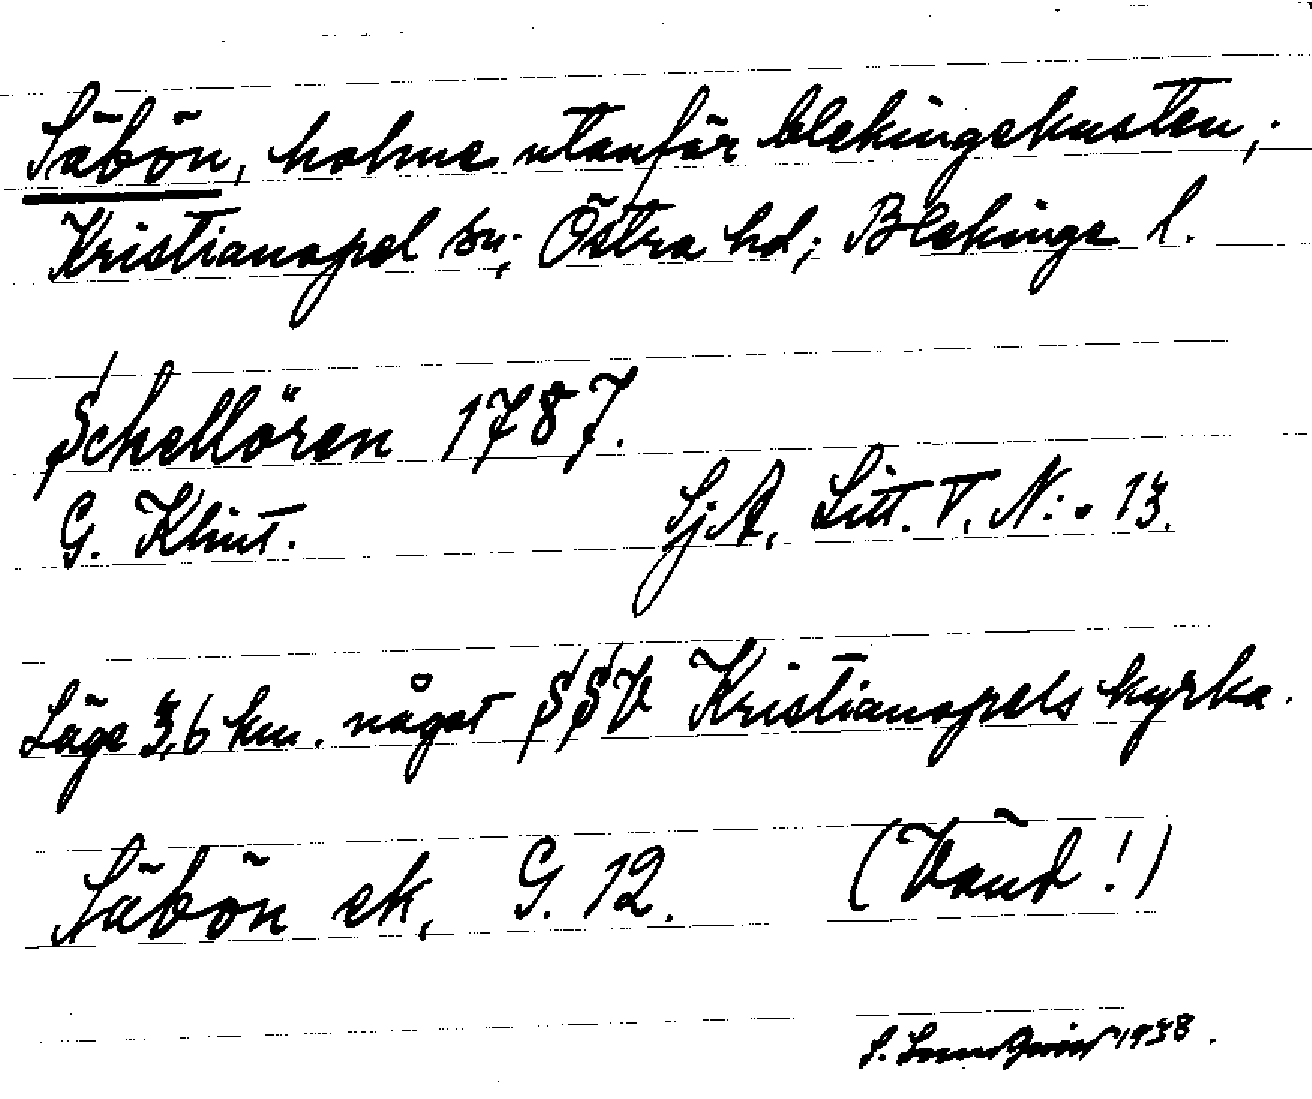 Säbön, holme utanför blekingekusten;
Kristianopel sn; Östra hd; Blekinge l.
Schellören 1787.
G. Klint. Sj.A. Litt. T. N:o 13.
Läge 3,6 km. något SSV Kristianopels kyrka.
Säbön ek. G. 12. (Vänd!)
1938.